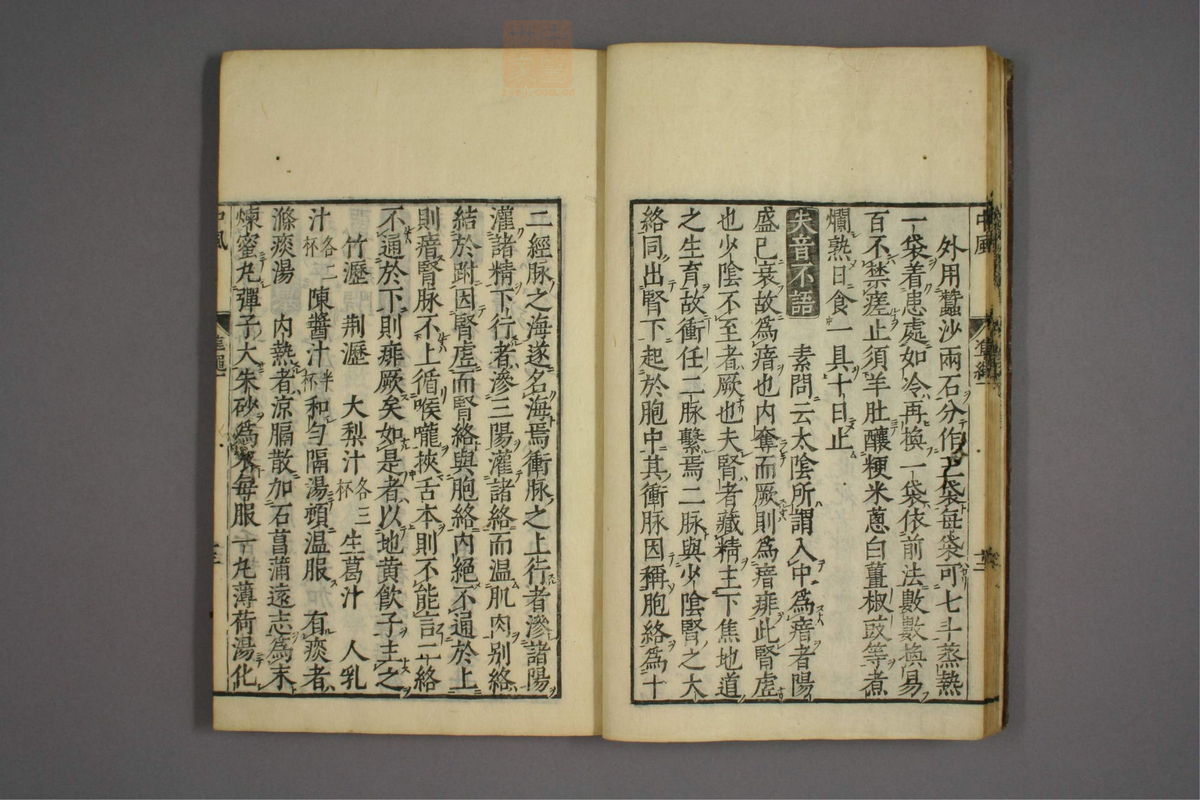 外用蠶沙兩石分作二袋每袋可七斗蒸熱
一袋着患處如冷再換一袋依前法數數換易
百不禁瘥止須羊肚釀粳米葱白薑椒豉等煮
爛熟日食一具十日止
失音不語 素問云太陰所謂入中為瘖者陽
盛已衰故為瘖也内奪而厥則為瘖痱此腎虚
也少陰不至者厥也夫腎者藏精主下焦地道
之生育故衝任二脉繫焉二脉與少陰腎之大
絡同出腎下起於胞中其衝脉因稱胞絡為十
二經脉之海遂名海焉衝脉之上行者滲諸陽
灌諸精下行者滲三陽灌諸絡而温肌肉别絡
結於跗因腎虚而腎絡與胞絡内絶不通於上
則瘖腎脉不上循喉嚨挾舌本則不能言二絡
不通於下則痱厥矣如是者以地黄飲子主之
竹瀝 荆瀝 大梨汁各三杯 生葛汁 人乳
汁各二杯 陳醬汁半杯 和勻隔湯頓温服 有痰者
滌痰湯 内熱者凉膈散加石菖蒲遠志為末
煉蜜丸彈子大朱砂為衣每服一丸薄荷湯化
中風
中風